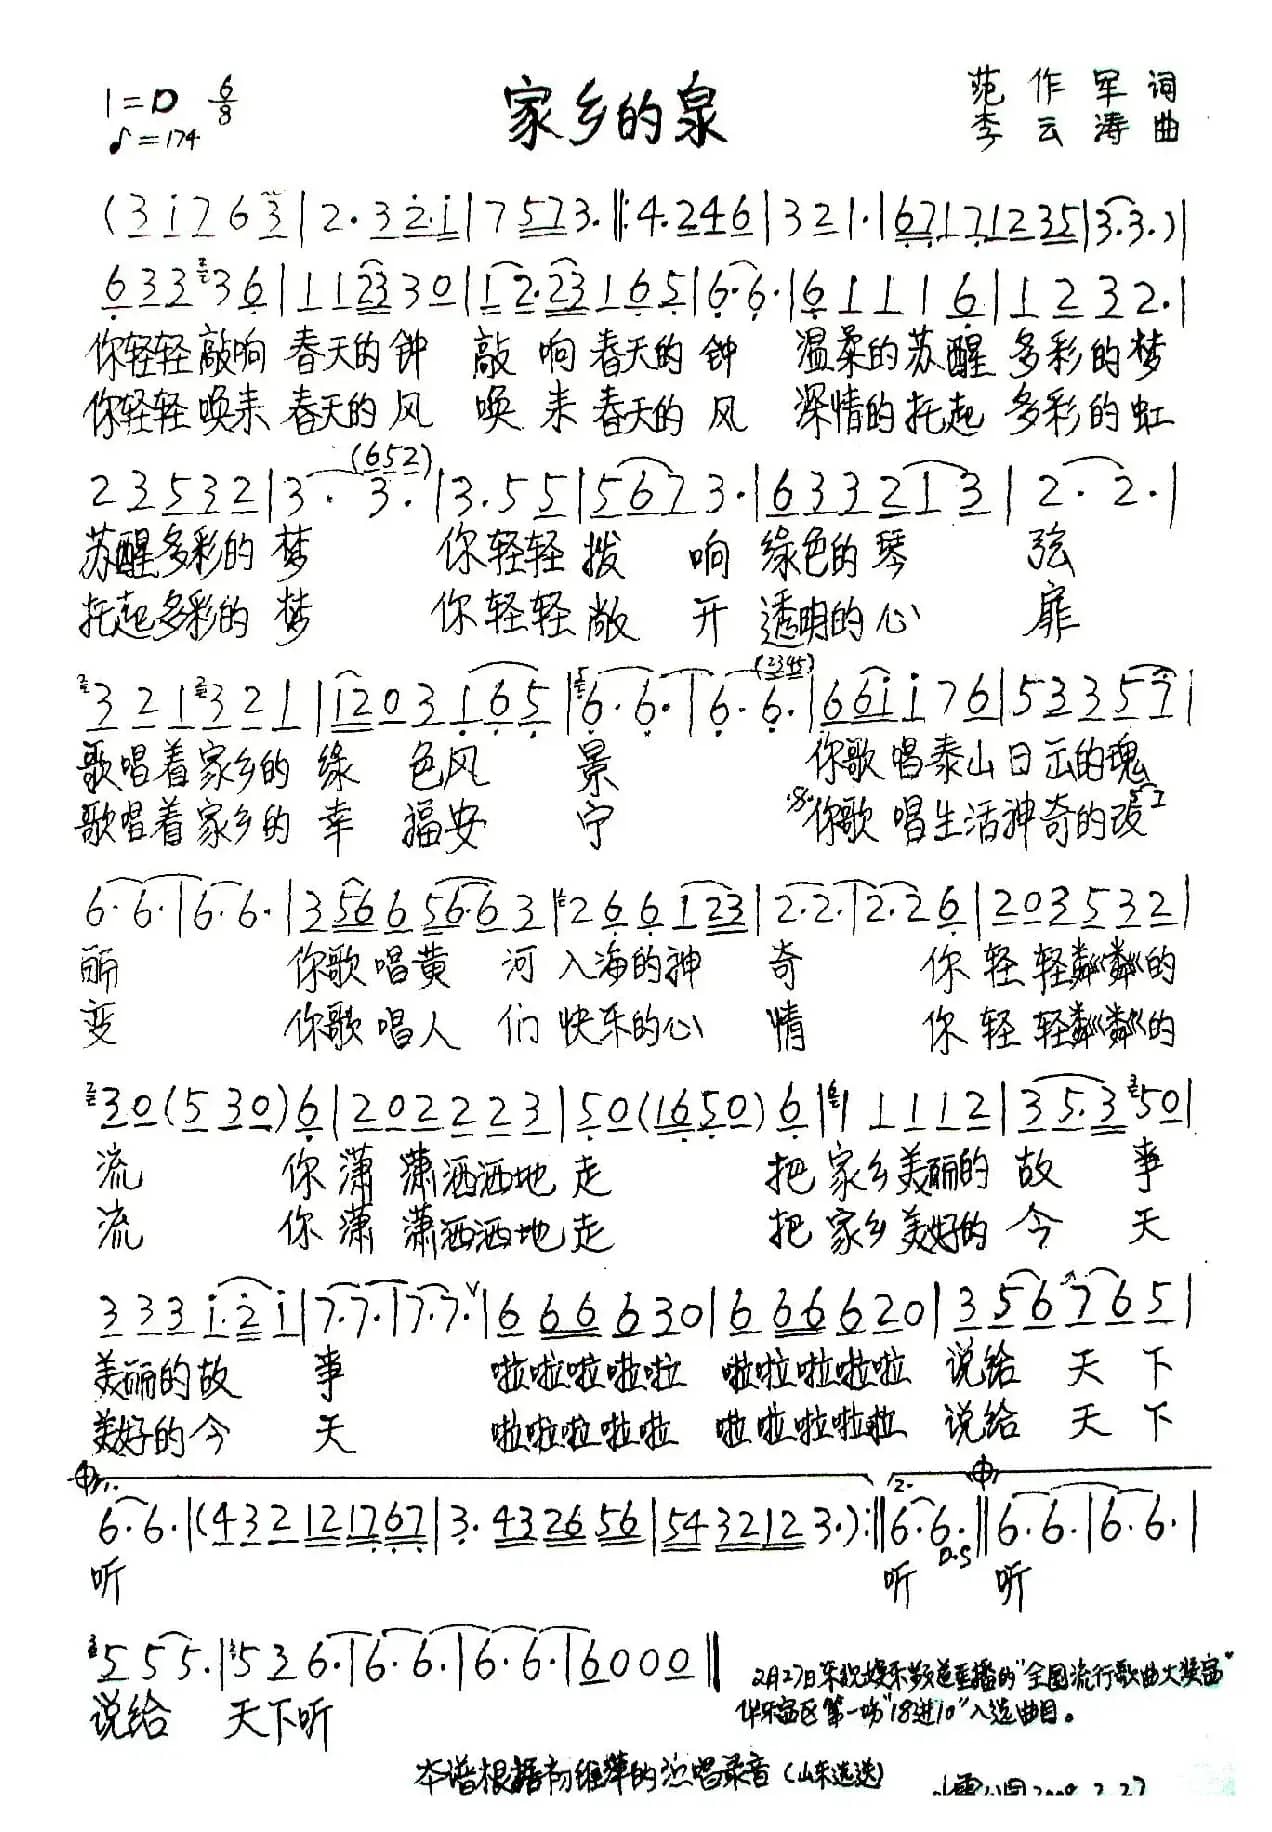 1=D 6/8
♪=174
家乡的泉
范作军 词
李云涛 曲
(3 i 7 6 3 | 2· 3 2· i | 7 5 7 3· ‖: 4· 2 4 6 | 3 2 1· | 6 7 1 7 1 2 3 5 | 3· 3· ) |
6 3 3 3 6 | 1 1 2 3 3 0 | 1 2· 2 3 1 6 5 | 6· 6· | 6 1 1 1 6 | 1 2 3 2· |
你轻轻敲响 春天的钟 敲 响春天的钟 温柔的苏醒 多彩的梦
你轻轻唤来 春天的风 唤 来春天的风 深情的托起 多彩的虹
(6 5 2)
2 3 5 3 2 | 3· 3· | 3· 5 5 | 5 6 7 3· | 6 3 3 2 1 3 | 2· 2· |
苏醒多彩的梦 你轻轻拨 响 绿色的琴 弦
托起多彩的梦 你轻轻敞 开 透明的心 扉
(2 3 4 5)
3 2 1 3 2 1 | 1 2 0 3 1 6 5 | 6· 6· | 6· 6· | 6 6 i i 7 6 | 5 3 3 5 7 |
歌唱着家乡的 绿 色风 景 你歌唱泰山日出的瑰
歌唱着家乡的 幸 福安 宁 你歌唱生活神奇的改
6· 6· | 6· 6· | 3 5 6 6 5 6· 6 3 | 2 6 6 1 2 3 | 2· 2· | 2· 2 6 | 2 0 3 5 3 2 |
丽 你歌唱黄 河入海的神 奇 你轻轻粼粼的
变 你歌唱人 们快乐的心 情 你轻轻粼粼的
3 0 (5 3 0) 6 | 2 0 2 2 2 3 | 5 0 (1 6 5 0) 6 | 1 1 1 1 2 | 3 5· 3 5 0 |
流 你潇 潇洒洒地走 把家乡美丽的故 事
流 你潇 潇洒洒地走 把家乡美好的今 天
3 3 3 i· 2 i | 7· 7· | 7· 7· ∨ | 6 6 6 6 3 0 | 6 6 6 6 2 0 | 3 5 6 7 6 5 |
美丽的故 事 啦啦啦啦啦 啦啦啦啦啦 说给 天 下
美好的今 天 啦啦啦啦啦 啦啦啦啦啦 说给 天 下
1. 2.
6· 6· | (4 3 2 1 2 1 7 6 7 | 3· 4 3 2 6 5 6 | 5 4 3 2 1 2 3· ) :‖ 6· 6· ‖ 6· 6· | 6· 6· |
D.S
听 听 听
5 5 5· | 5 3 6· | 6· 6· | 6· 6· | 6 0 0 0 ‖
说给 天下听
2月27日东视娱乐频道直播的"全国流行歌曲大奖赛"
华东赛区第一场"18进10"入选曲目。
本谱根据 的演唱录音(山东选送)